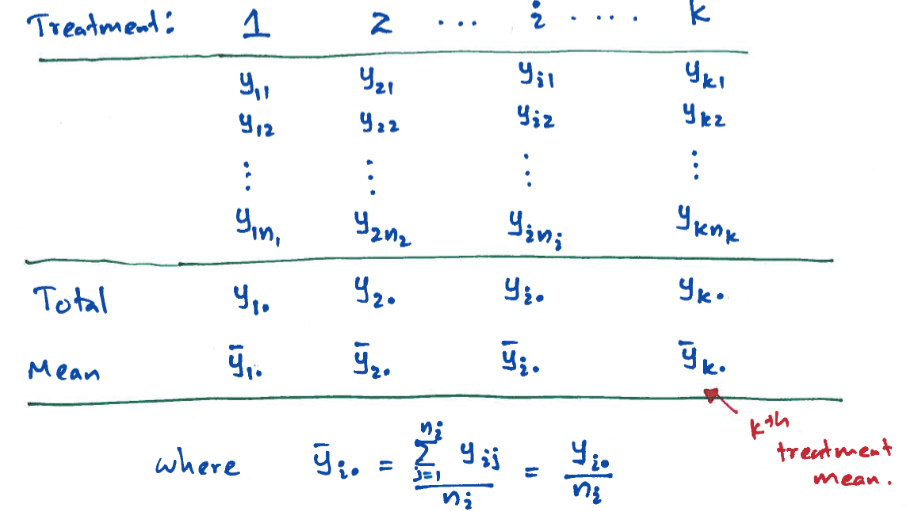 Treatment: 1 2 ... i .... k
y₁₁ y₂₁ yᵢ₁ yₖ₁
y₁₂ y₂₂ yᵢ₂ yₖ₂
⋮ ⋮ ⋮ ⋮
y₁ₙ₁ y₂ₙ₂ yᵢₙᵢ yₖₙₖ
Total y₁. y₂. yᵢ. yₖ.
Mean ȳ₁. ȳ₂. ȳᵢ. ȳₖ.
kth
treatment
mean.
where ȳᵢ. = ∑ⱼ₌₁ⁿⁱ yᵢⱼ / nᵢ = yᵢ. / nᵢ